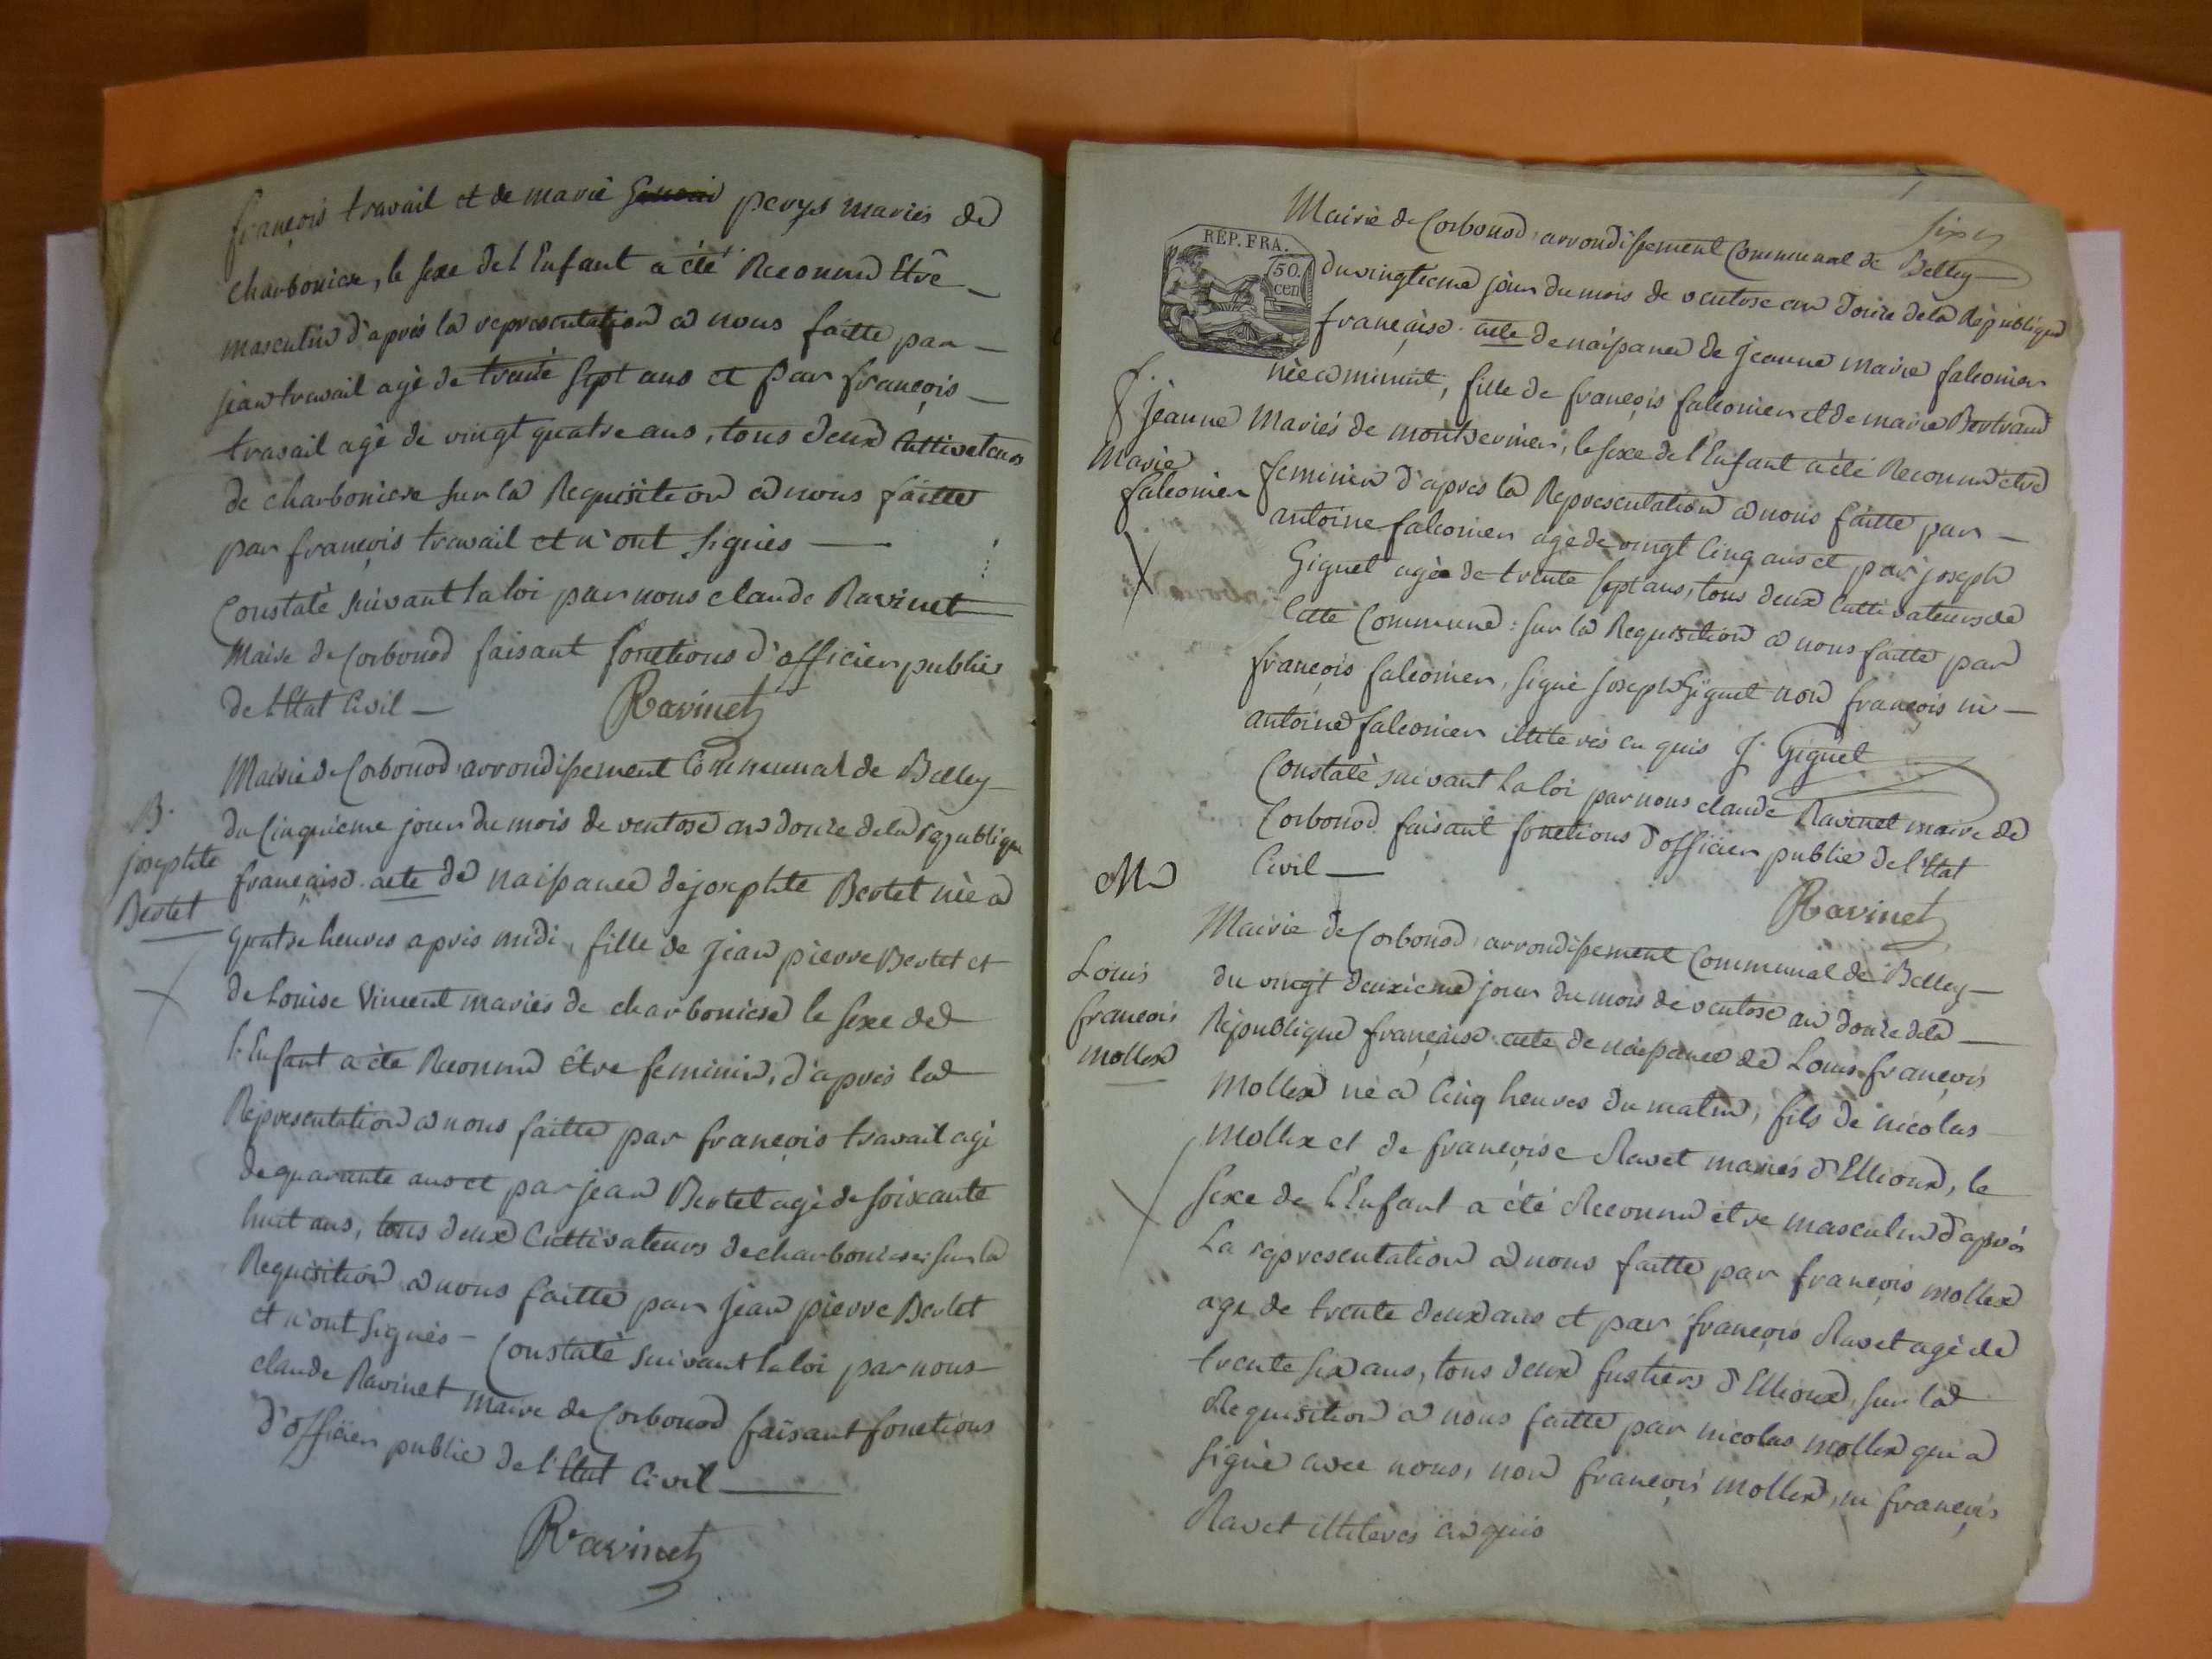 françois travail et de marie perys mariés de
charboniere, le sexe de l'Enfant a été Reconnu Etre
masculin d'aprés la representation a nous faitte par
jean travail agé de trente sept ans et par françois
travail agé de vingt quatre ans, tous deux Cultivateurs
de charboniere sur la Requisition a nous faitte
par françois travail et n'ont signés
Constaté suivant la loi par nous claude Ravinet
Maire de Corbonod faisant fonctions d'officier public
de l'Etat Civil
Ravinet
Mairie de Corbonod arrondissement Communal de Belley
B.
josephte
Bertet
du Cinquieme jour du mois de ventose an douze de la republique
française. acte de naissance de josephte Bertet née a
quatre heures après midi, fille de jean pierre Bertet et
de Louise Vincent mariés de charboniere le sexe de
l'Enfant a été Reconnu être feminin, d'après la
Representation a nous faitte par françois travail agé
de quarante ans et par jean Bertet agé de soixante
huit ans, tous deux Cultivateurs de charboniere; sur la
Requisition a nous faitte par jean pierre Bertet
et n'ont signés - Constaté suivant la loi par nous
claude Ravinet Maire de Corbonod faisant fonctions
d'officier public de l'Etat Civil
Ravinet
REP. FRA.
50 cen
Mairie de Corbonod, arrondissement Communal de Belley
du vingtieme jour du mois de ventose an douze de la République
française. acte de naissance de jeanne marie falconier
née a minuit, fille de françois falconier et de marie Bertrand
jeanne
Marie
falconier
Mariés de montvernier, le sexe de l'Enfant a été Reconnu être
feminin d'apres la Representation a nous faitte par
antoine falconier agé de vingt Cinq ans et par joseph
Giguet agée de trente sept ans, tous deux Cultivateurs de
Cette Commune: sur la Requisition a nous faitte par
françois falconier, signé joseph Giguet non françois ni
antoine falconier illiterés en quis J. Giguet
Constaté suivant la loi par nous claude Ravinet maire de
Corbonod faisant fonctions d'officier public de l'Etat
Civil
Ravinet
Mairie de Corbonod, arrondissement Communal de Belley
Louis
francois
mollex
du vingt deuxieme jour du mois de ventose an douze de la
République française acte de naissance de Louis françois
Mollex né a Cinq heures du matin, fils de nicolas
Mollex et de françoise Ravet mariés d'Ellioux, le
sexe de l'Enfant a été Reconnu être masculin d'après
La representation a nous faitte par françois mollex
agé de trente deux ans et par françois Ravet agé de
trente six ans, tous deux fustiers d'Ellioux, sur la
Requisition a nous faitte par nicolas mollex qui a
signé avec nous, non françois mollex, ni françois
Ravet illiterés enquis